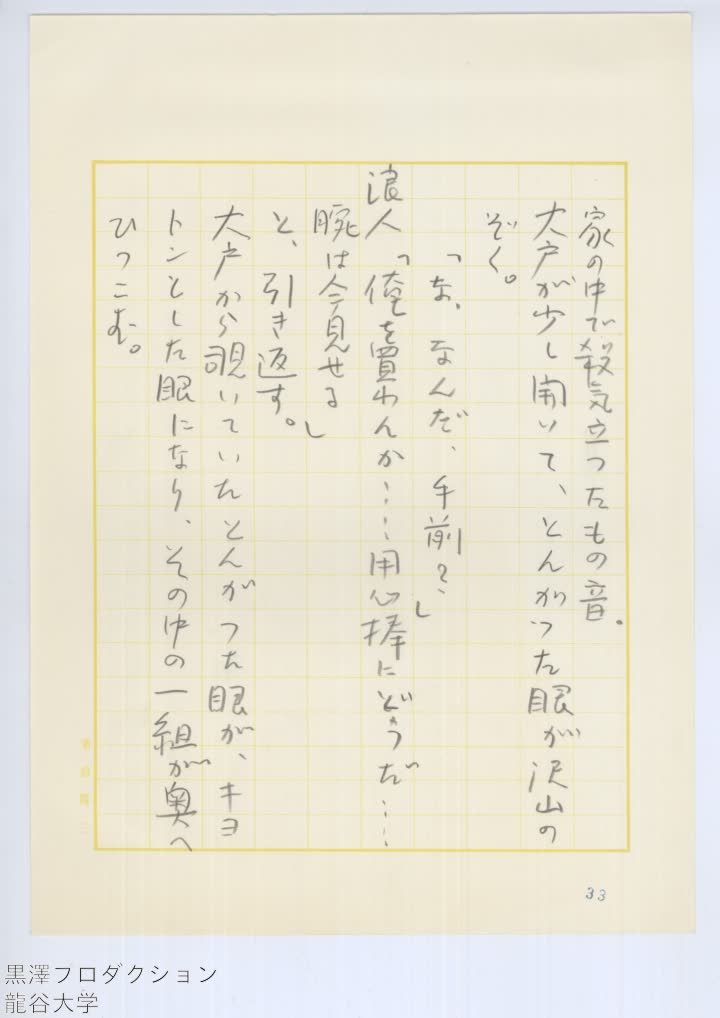 家の中で殺気立つたもの音。
大戸が少し開いて、とんがつた眼が沢山の
ぞく。
「な、なんだ、手前？」
浪人「俺を買わんか……用心棒にどうだ……
腕は今見せる」
と、引き返す。
大戸から覗いていたとんがつた眼が、キヨ
トンとした眼になり、その中の一組が奥へ
ひつこむ。
33
黒澤フロダクション
龍谷大学